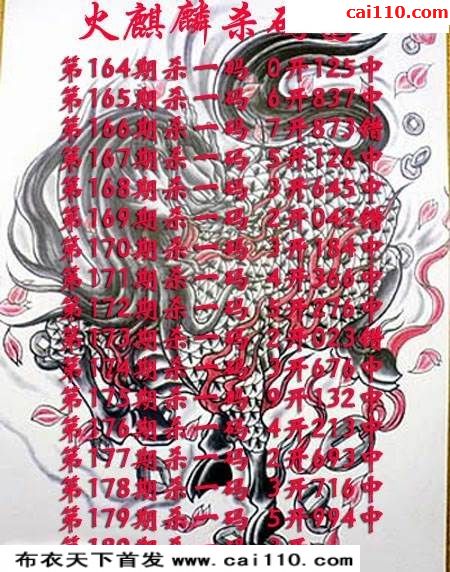 cai110.com
火麒麟杀码
第164期杀一码 0开125中
第165期杀一码 6开837中
第166期杀一码 7开873错
第167期杀一码 5开126中
第168期杀一码 3开645中
第169期杀一码 2开042错
第170期杀一码 3开184中
第171期杀一码 4开366中
第172期杀一码 5开276中
第173期杀一码 2开023错
第174期杀一码 3开676中
第175期杀一码 9开132中
第176期杀一码 4开213中
第177期杀一码 2开693中
第178期杀一码 3开716中
第179期杀一码 5开994中
布衣天下首发 www.cai110.com